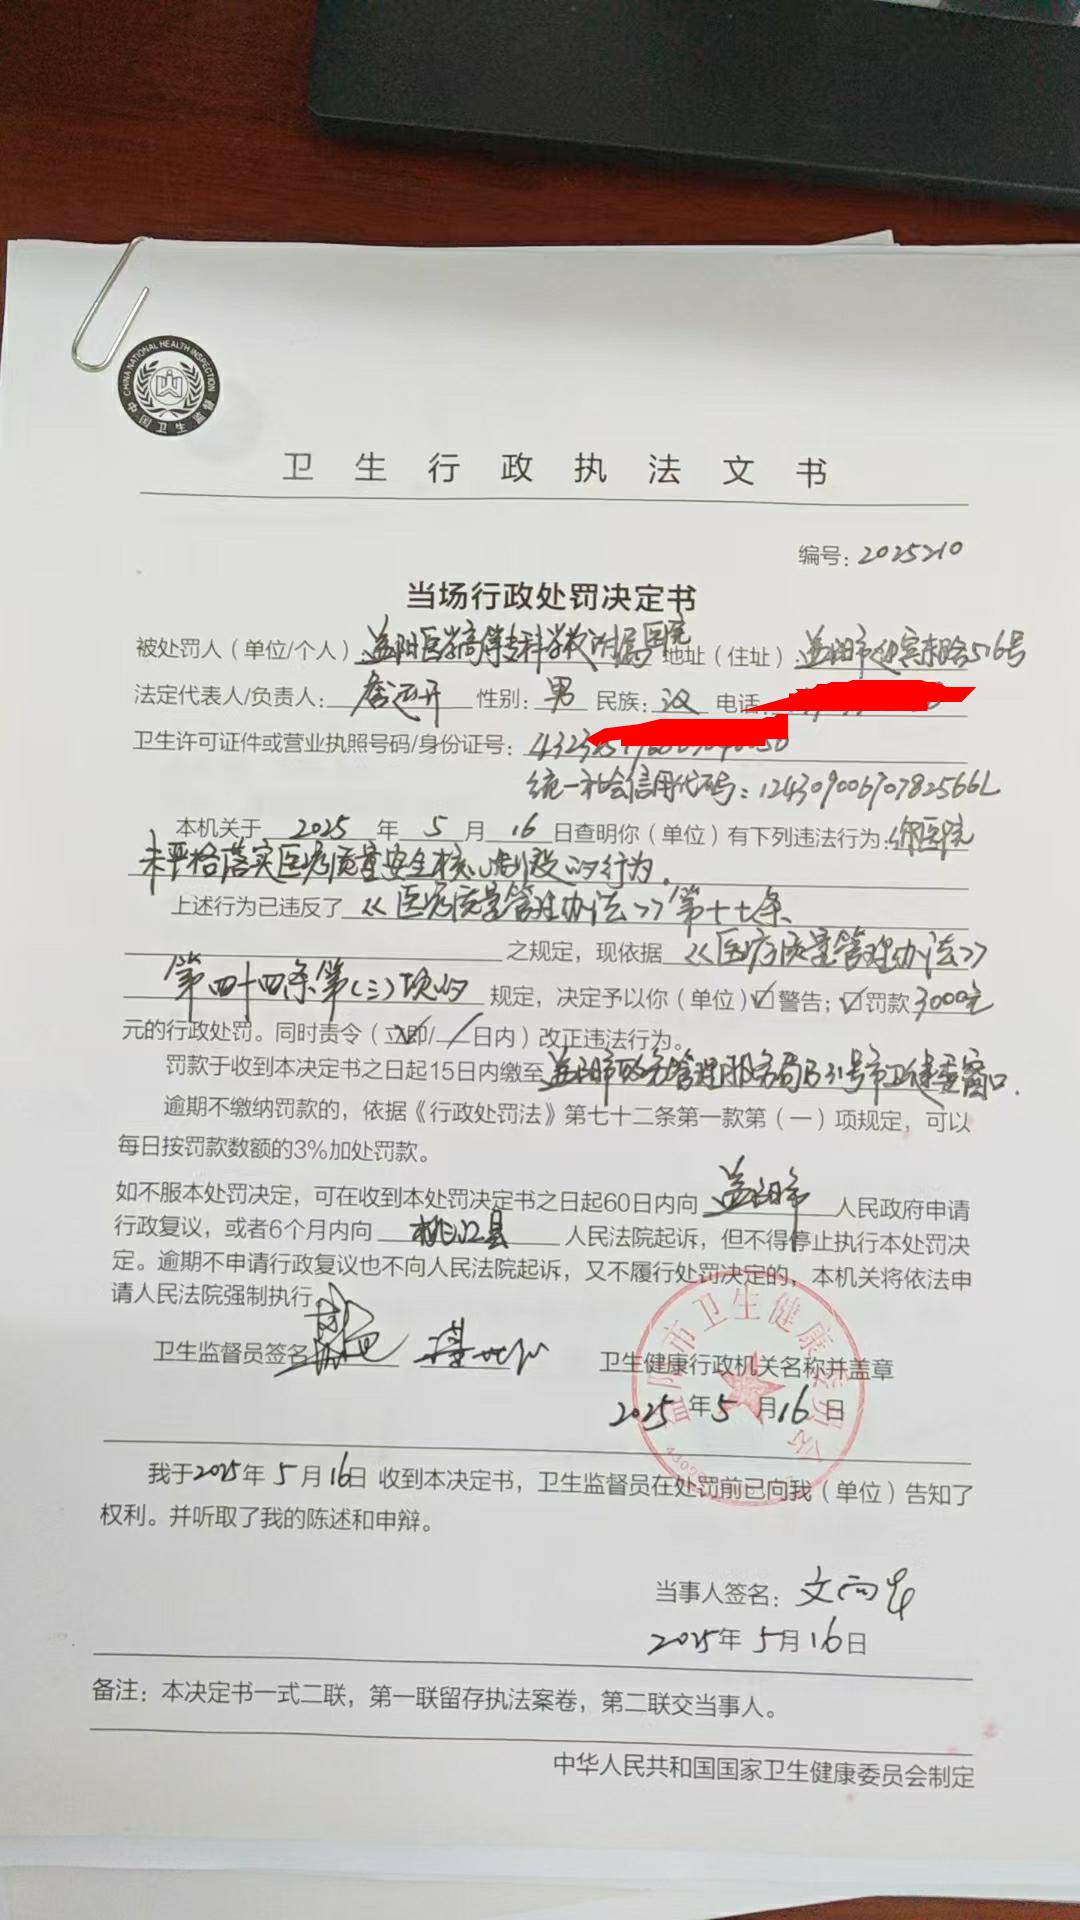 CHINA NATIONAL HEALTH INSPECTION
中国卫生监督
卫生行政执法文书
编号：2025210
当场行政处罚决定书
被处罚人（单位/个人）：益阳医学高等专科学校附属医院 地址（住址）：益阳市迎宾东路516号
法定代表人/负责人： 性别：男 民族：汉 电话：
卫生许可证件或营业执照号码/身份证号：
统一社会信用代码：
本机关于 2025 年 5 月 16 日查明你（单位）有下列违法行为：你医院
未严格落实医疗质量安全核心制度的行为.
上述行为已违反了《医疗质量管理办法》第十七条
之规定，现依据《医疗质量管理办法》
第四十四条第(三)项的 规定，决定予以你（单位）☑警告；☑罚款3000元
元的行政处罚。同时责令（立即/ / 日内）改正违法行为。
罚款于收到本决定书之日起15日内缴至 益阳市政务管理服务局B31号市卫健委窗口.
逾期不缴纳罚款的，依据《行政处罚法》第七十二条第一款第（一）项规定，可以
每日按罚款数额的3%加处罚款。
如不服本处罚决定，可在收到本处罚决定书之日起60日内向 益阳市 人民政府申请
行政复议，或者6个月内向 桃江县 人民法院起诉，但不得停止执行本处罚决
定。逾期不申请行政复议也不向人民法院起诉，又不履行处罚决定的，本机关将依法申
请人民法院强制执行
卫生监督员签名
卫生健康行政机关名称并盖章
益阳市卫生健康委员会
2025 年 5 月 16 日
我于2025年 5 月 16日 收到本决定书，卫生监督员在处罚前已向我（单位）告知了
权利。并听取了我的陈述和申辩。
当事人签名：
2025年 5月16日
备注：本决定书一式二联，第一联留存执法案卷，第二联交当事人。
中华人民共和国国家卫生健康委员会制定